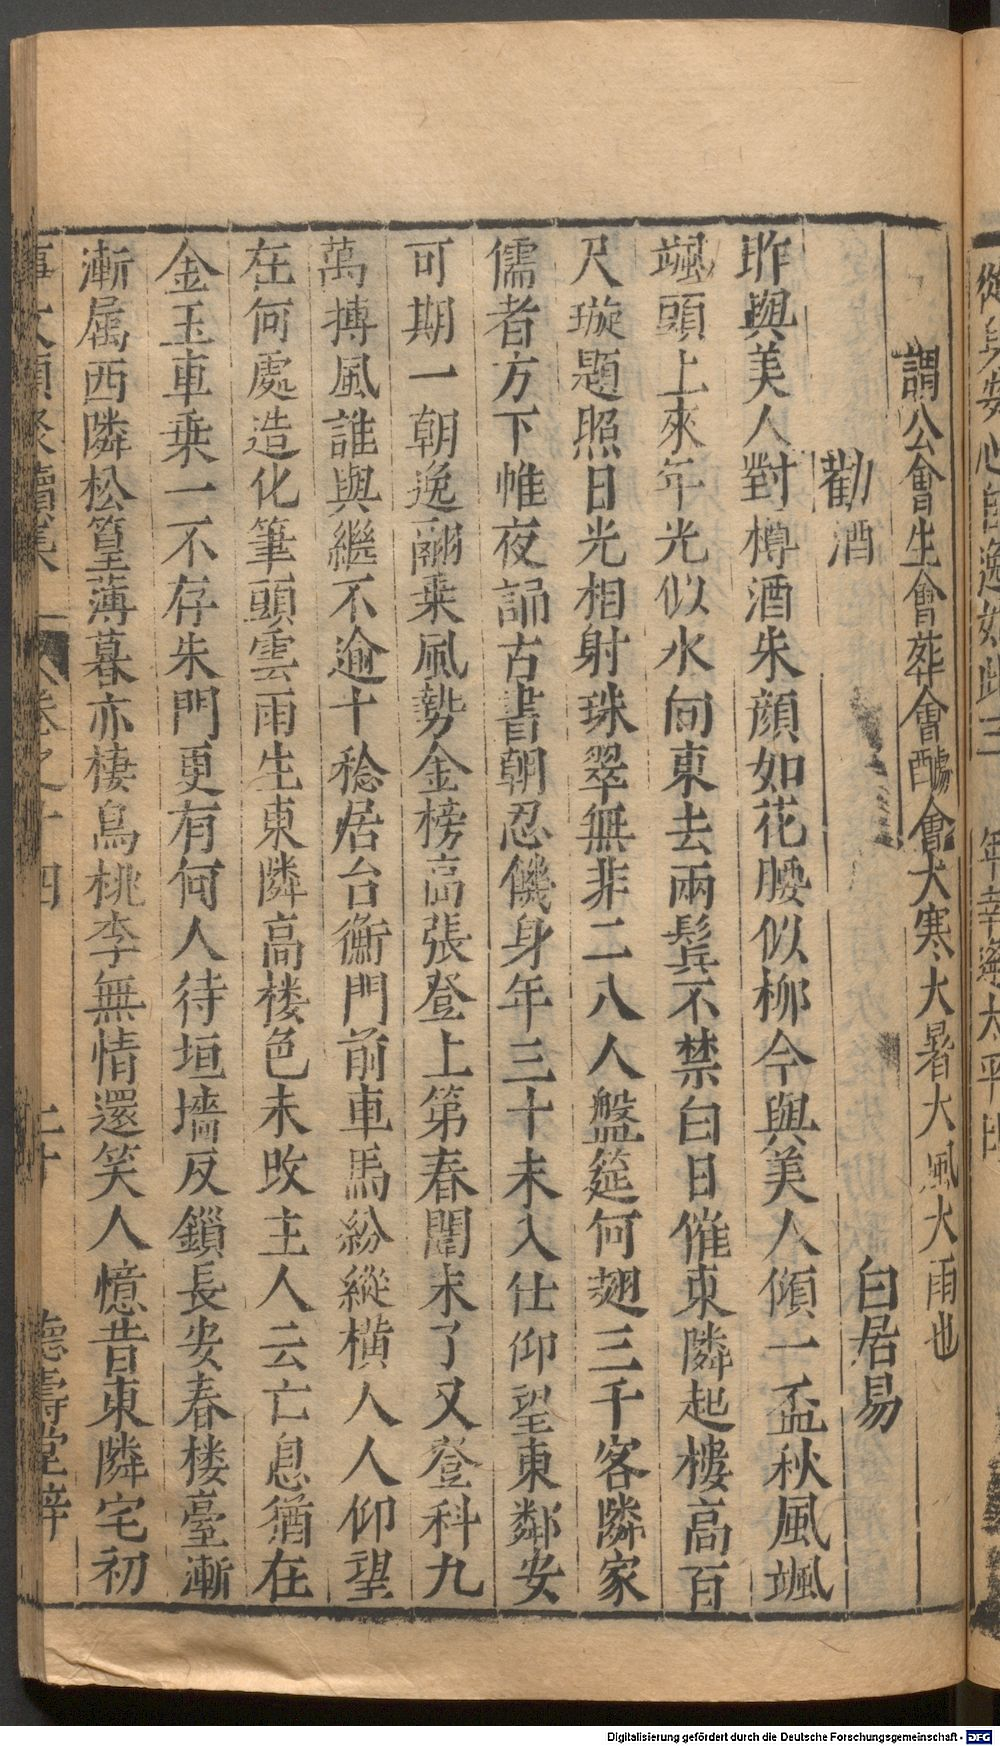 謂公會生會葬會醵會大寒大暑大風大雨也
勸酒　白居易
昨與美人對樽酒朱顏如花腰似柳今與美人傾一盃秋風颯
颯頭上來年光似水向東去兩鬢不禁白日催東隣起樓高百
尺璇題照日光相射珠翠無非二八人盤筵何翅三千客隣家
儒者方下帷夜誦古書朝忍饑身年三十未入仕仰望東鄰安
可期一朝逸翮乗風勢金榜高張登上第春闈未了又登科九
萬摶風誰與繼不逾十稔居台衡門前車馬紛縱橫人人仰望
在何處造化筆頭雲雨生東隣高楼色未改主人云亡息猶在
金玉車乗一不存朱門更有何人待垣墻反鎖長安春楼臺漸
漸属西隣松篁薄暮亦棲鳥桃李無情還笑人憶昔東隣宅初
事文類聚續集 卷之十四 二十 德壽堂梓
Digitalisierung gefördert durch die Deutsche Forschungsgemeinschaft - DFG